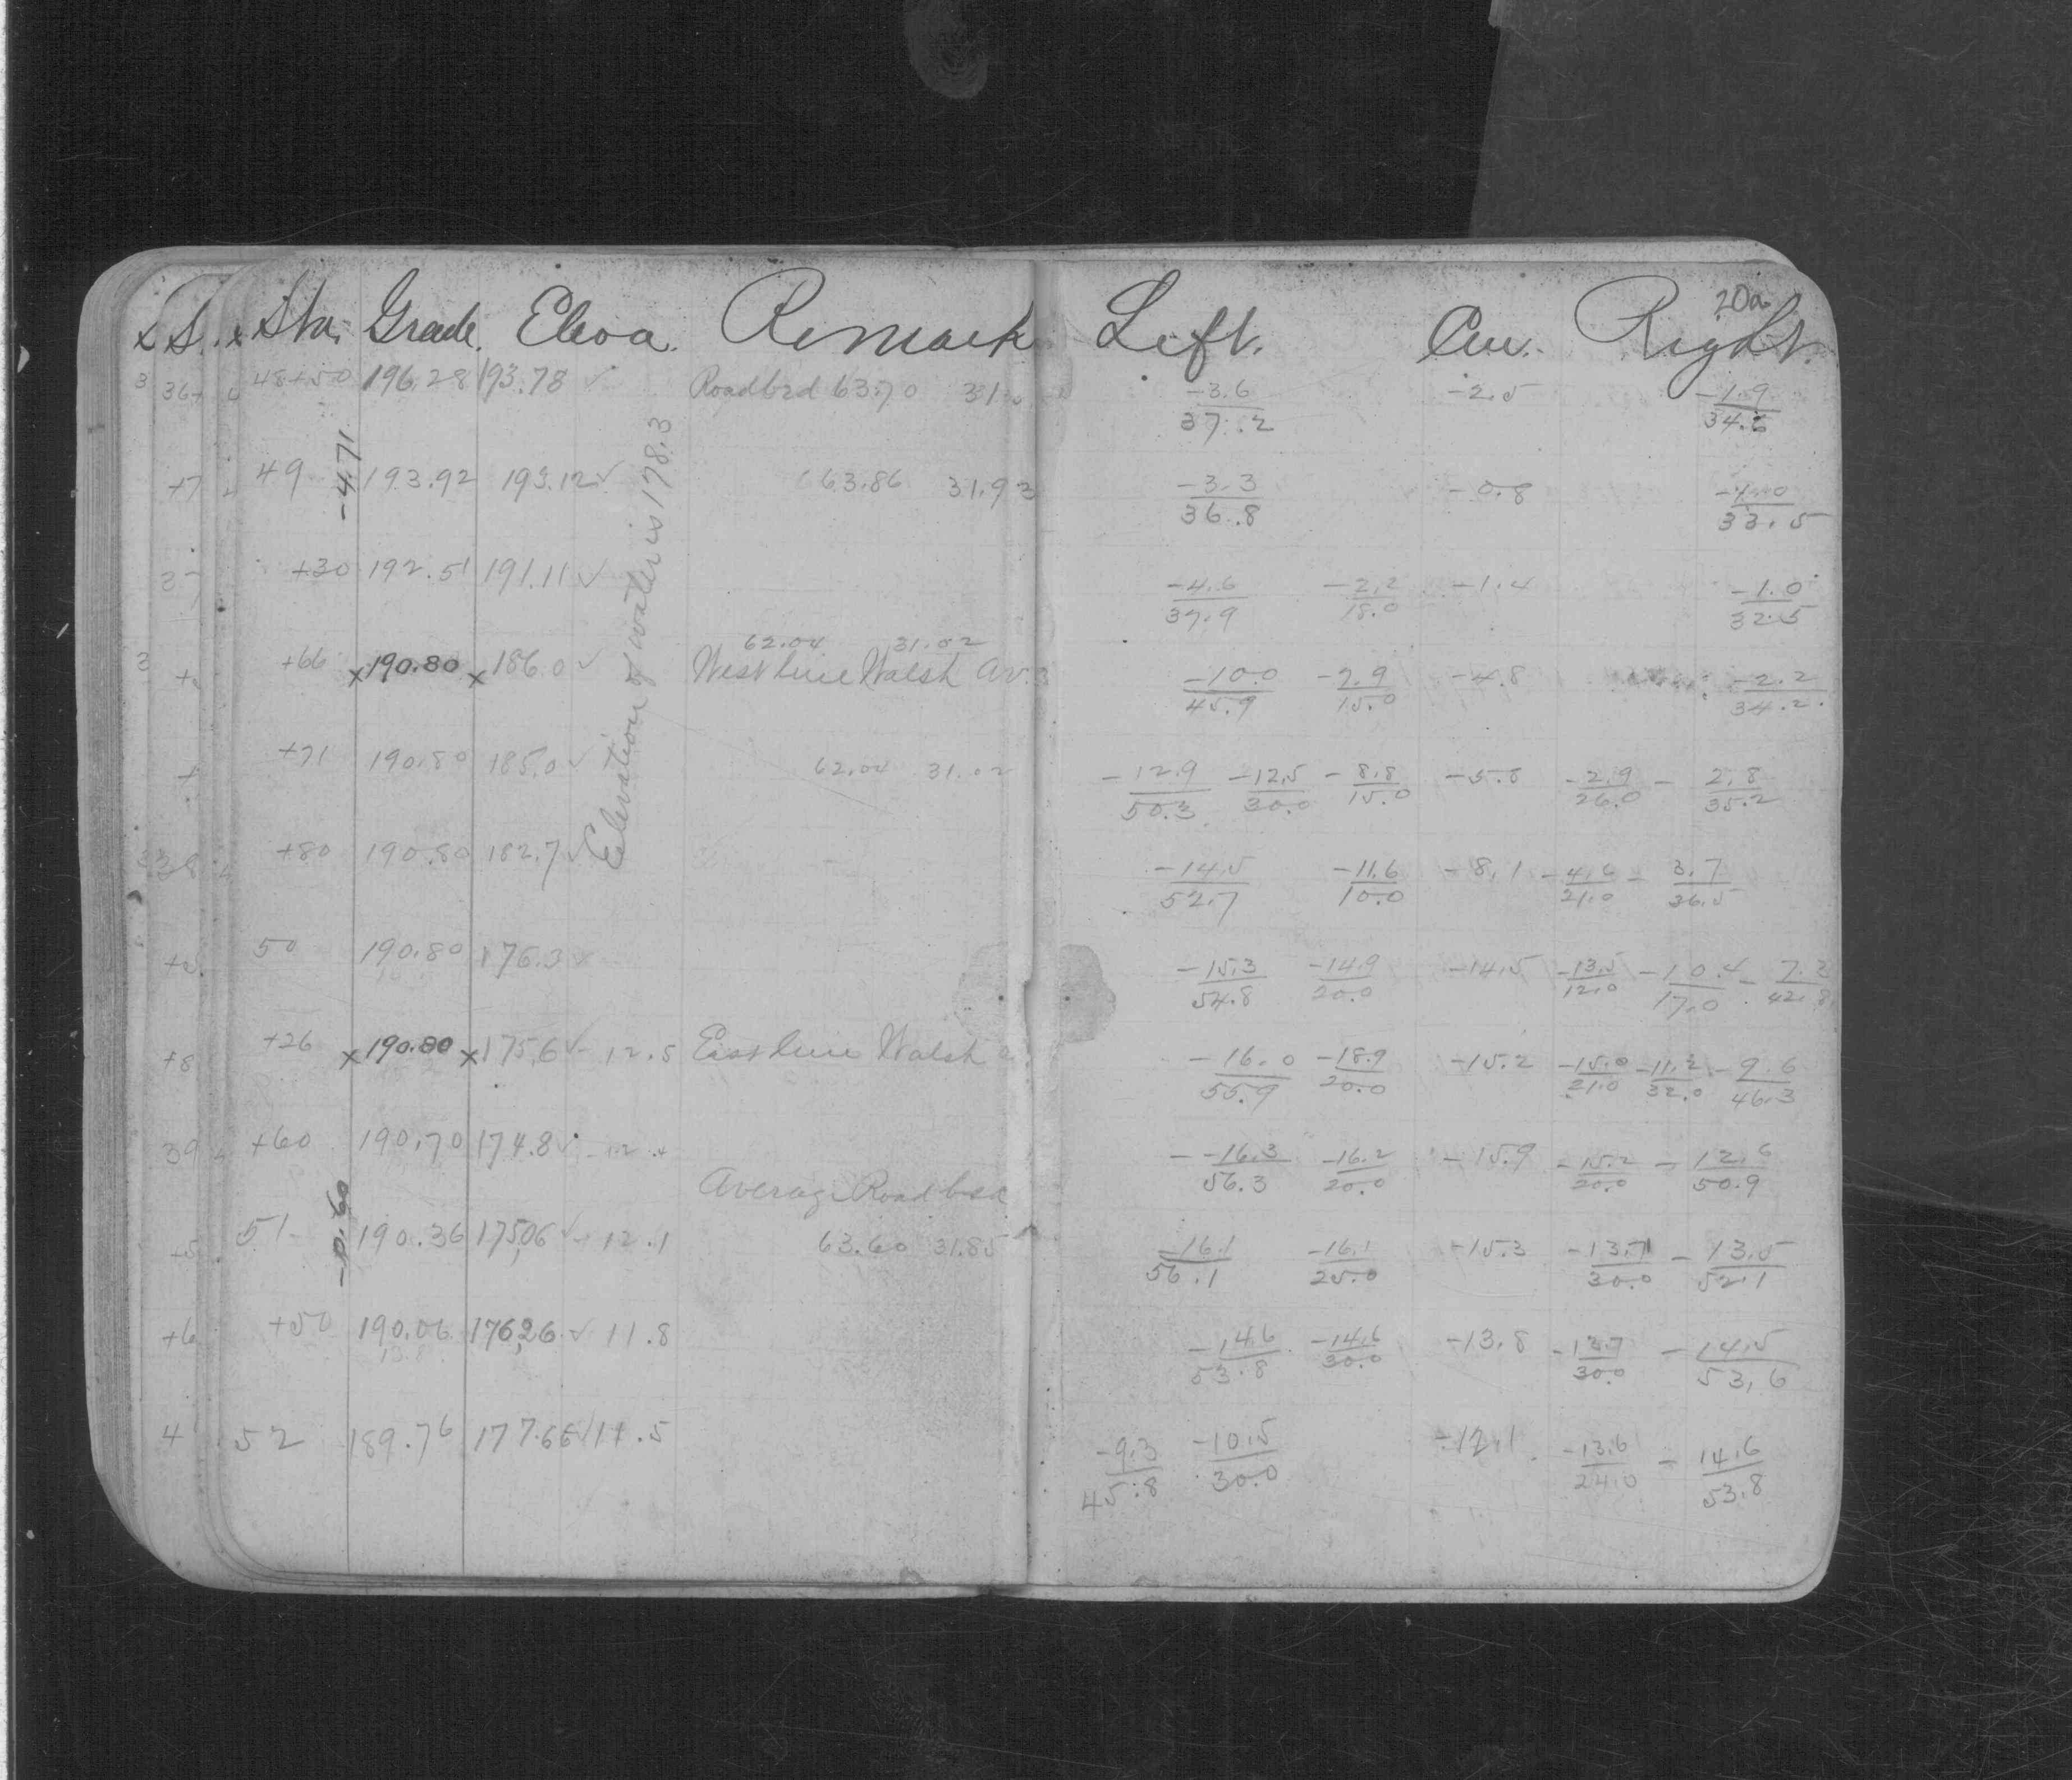 Sta. Grade. Eleva. Remark Left. Cen. Right. 20a
48+50 196.28 193.78 ✓ Roadbed 63.70 31. -3.6/37.2 -2.5 -1.9/34.6
-4.71
49 193.92 193.12 ✓ 63.86 31.93 -3.3/36.8 -0.8 -1.0/33.5
+30 192.51 191.11 ✓ -4.6/37.9 -2.2/18.0 -1.4 -1.0/32.5
62.04 31.02
+66 x 190.80 x 186.0 ✓ West line Walsh Av. -10.0/45.9 -7.9/15.0 -4.8 -2.2/34.2
+71 190.80 185.0 ✓ 62.04 31.02 -12.9/50.3 -12.5/30.0 -8.8/15.0 -5.8 -2.9/26.0 -2.8/35.2
+80 190.80 182.7 ✓ -14.5/52.7 -11.6/10.0 -8.1 -4.6/21.0 -3.7/36.5
Elevation of water is 178.3
50 190.80 176.3 -15.3/54.8 -14.9/20.0 -14.5 -13.5/12.0 -10.4/17.0 -7.2/42.8
+26 x 190.80 x 175.6 ✓ - 12.5 East line Walsh -16.0/55.9 -18.9/20.0 -15.2 -15.0/21.0 -11.2/32.0 -9.6/46.3
+60 190.70 174.8 ✓ -16.3/56.3 -16.2/20.0 -15.9 -15.2/20.0 -12.6/50.9
Average Roadbed
-0.60
51 190.36 175.06 ✓ - 12.1 63.60 31.85 -16.1/56.1 -16.1/25.0 -15.3 -13.7/30.0 -13.5/52.1
+50 190.06 176.26 ✓ 11.8 -14.6/53.8 -14.6/30.0 -13.8 -13.7/30.0 -14.5/53.6
52 189.76 177.66 ✓ 11.5 -9.3/45.8 -10.5/30.0 -12.1 -13.6/24.0 -14.6/53.8